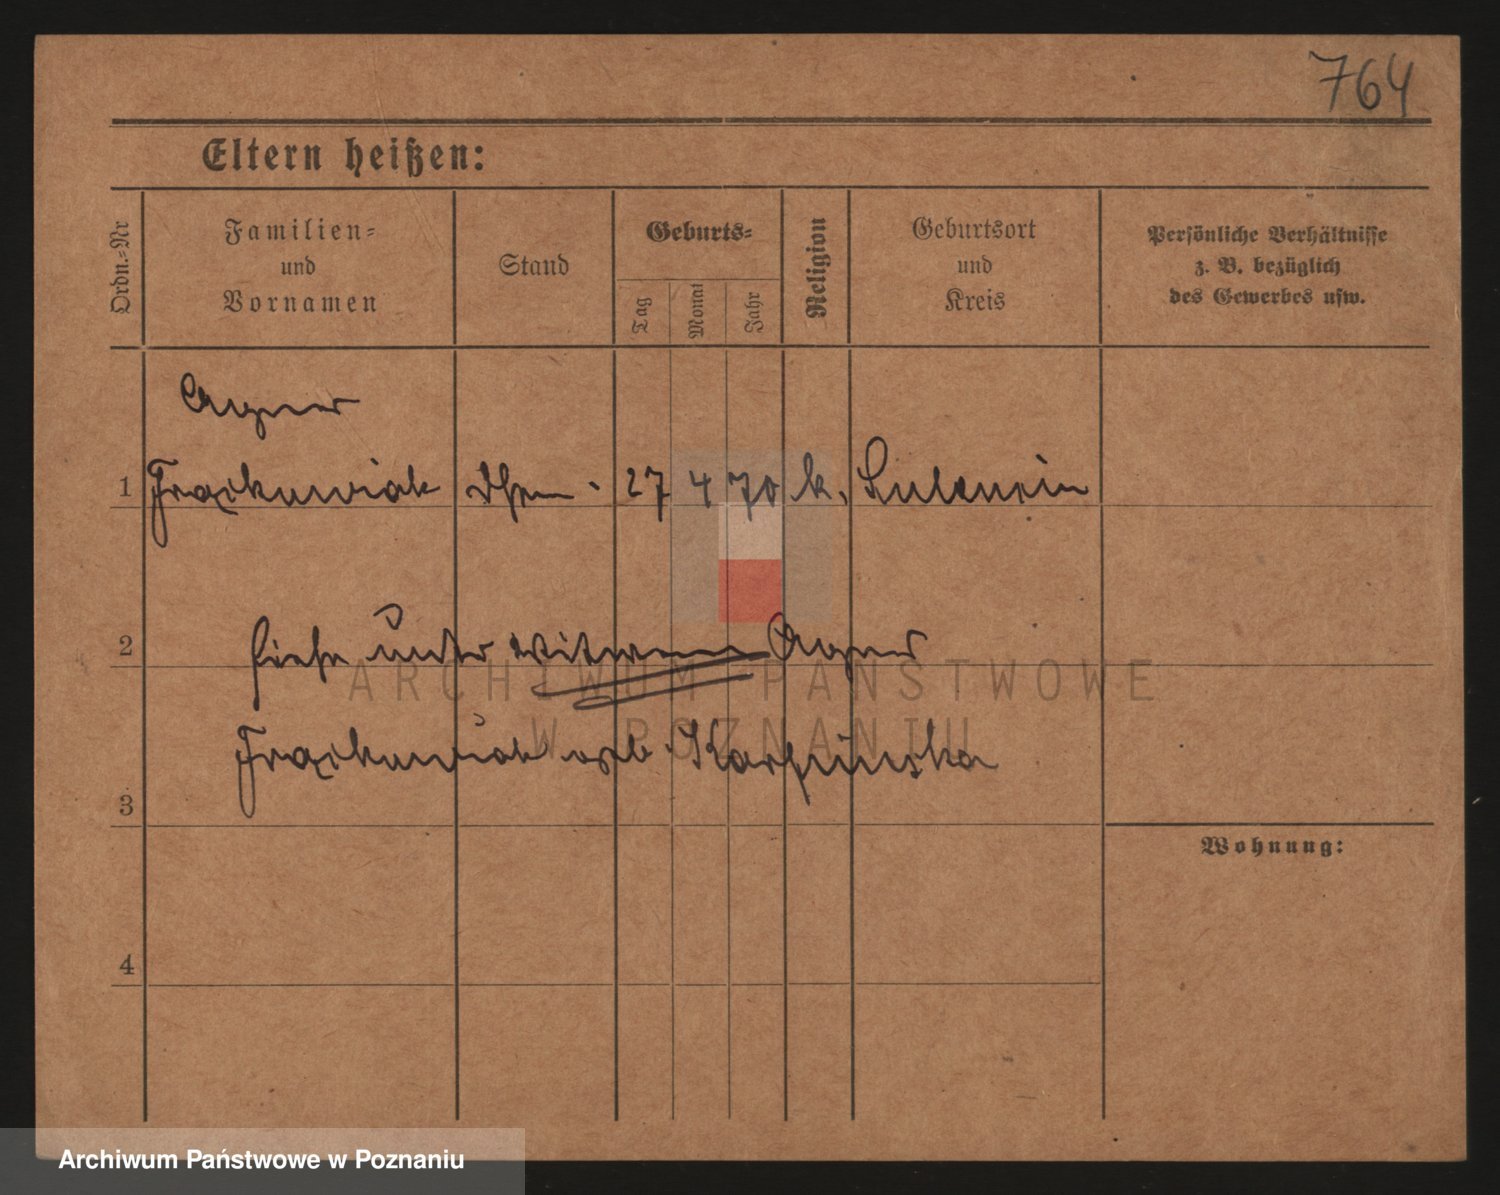 764
Eltern heißen:
Ordn.-Nr
Familien-
und
Vornamen
Stand
Geburts-
Tag
Monat
Jahr
Religion
Geburtsort
und
Kreis
Persönliche Verhältnisse
z. B. bezüglich
des Gewerbes usw.
Agnes
1 Frąckowiak 27 4 70 k.
2 siehe unter Witwe Agnes
Frąckowiak geb Karpinska
3
Wohnung:
4
ARCHIWUM PAŃSTWOWE
W POZNANIU
Archiwum Państwowe w Poznaniu